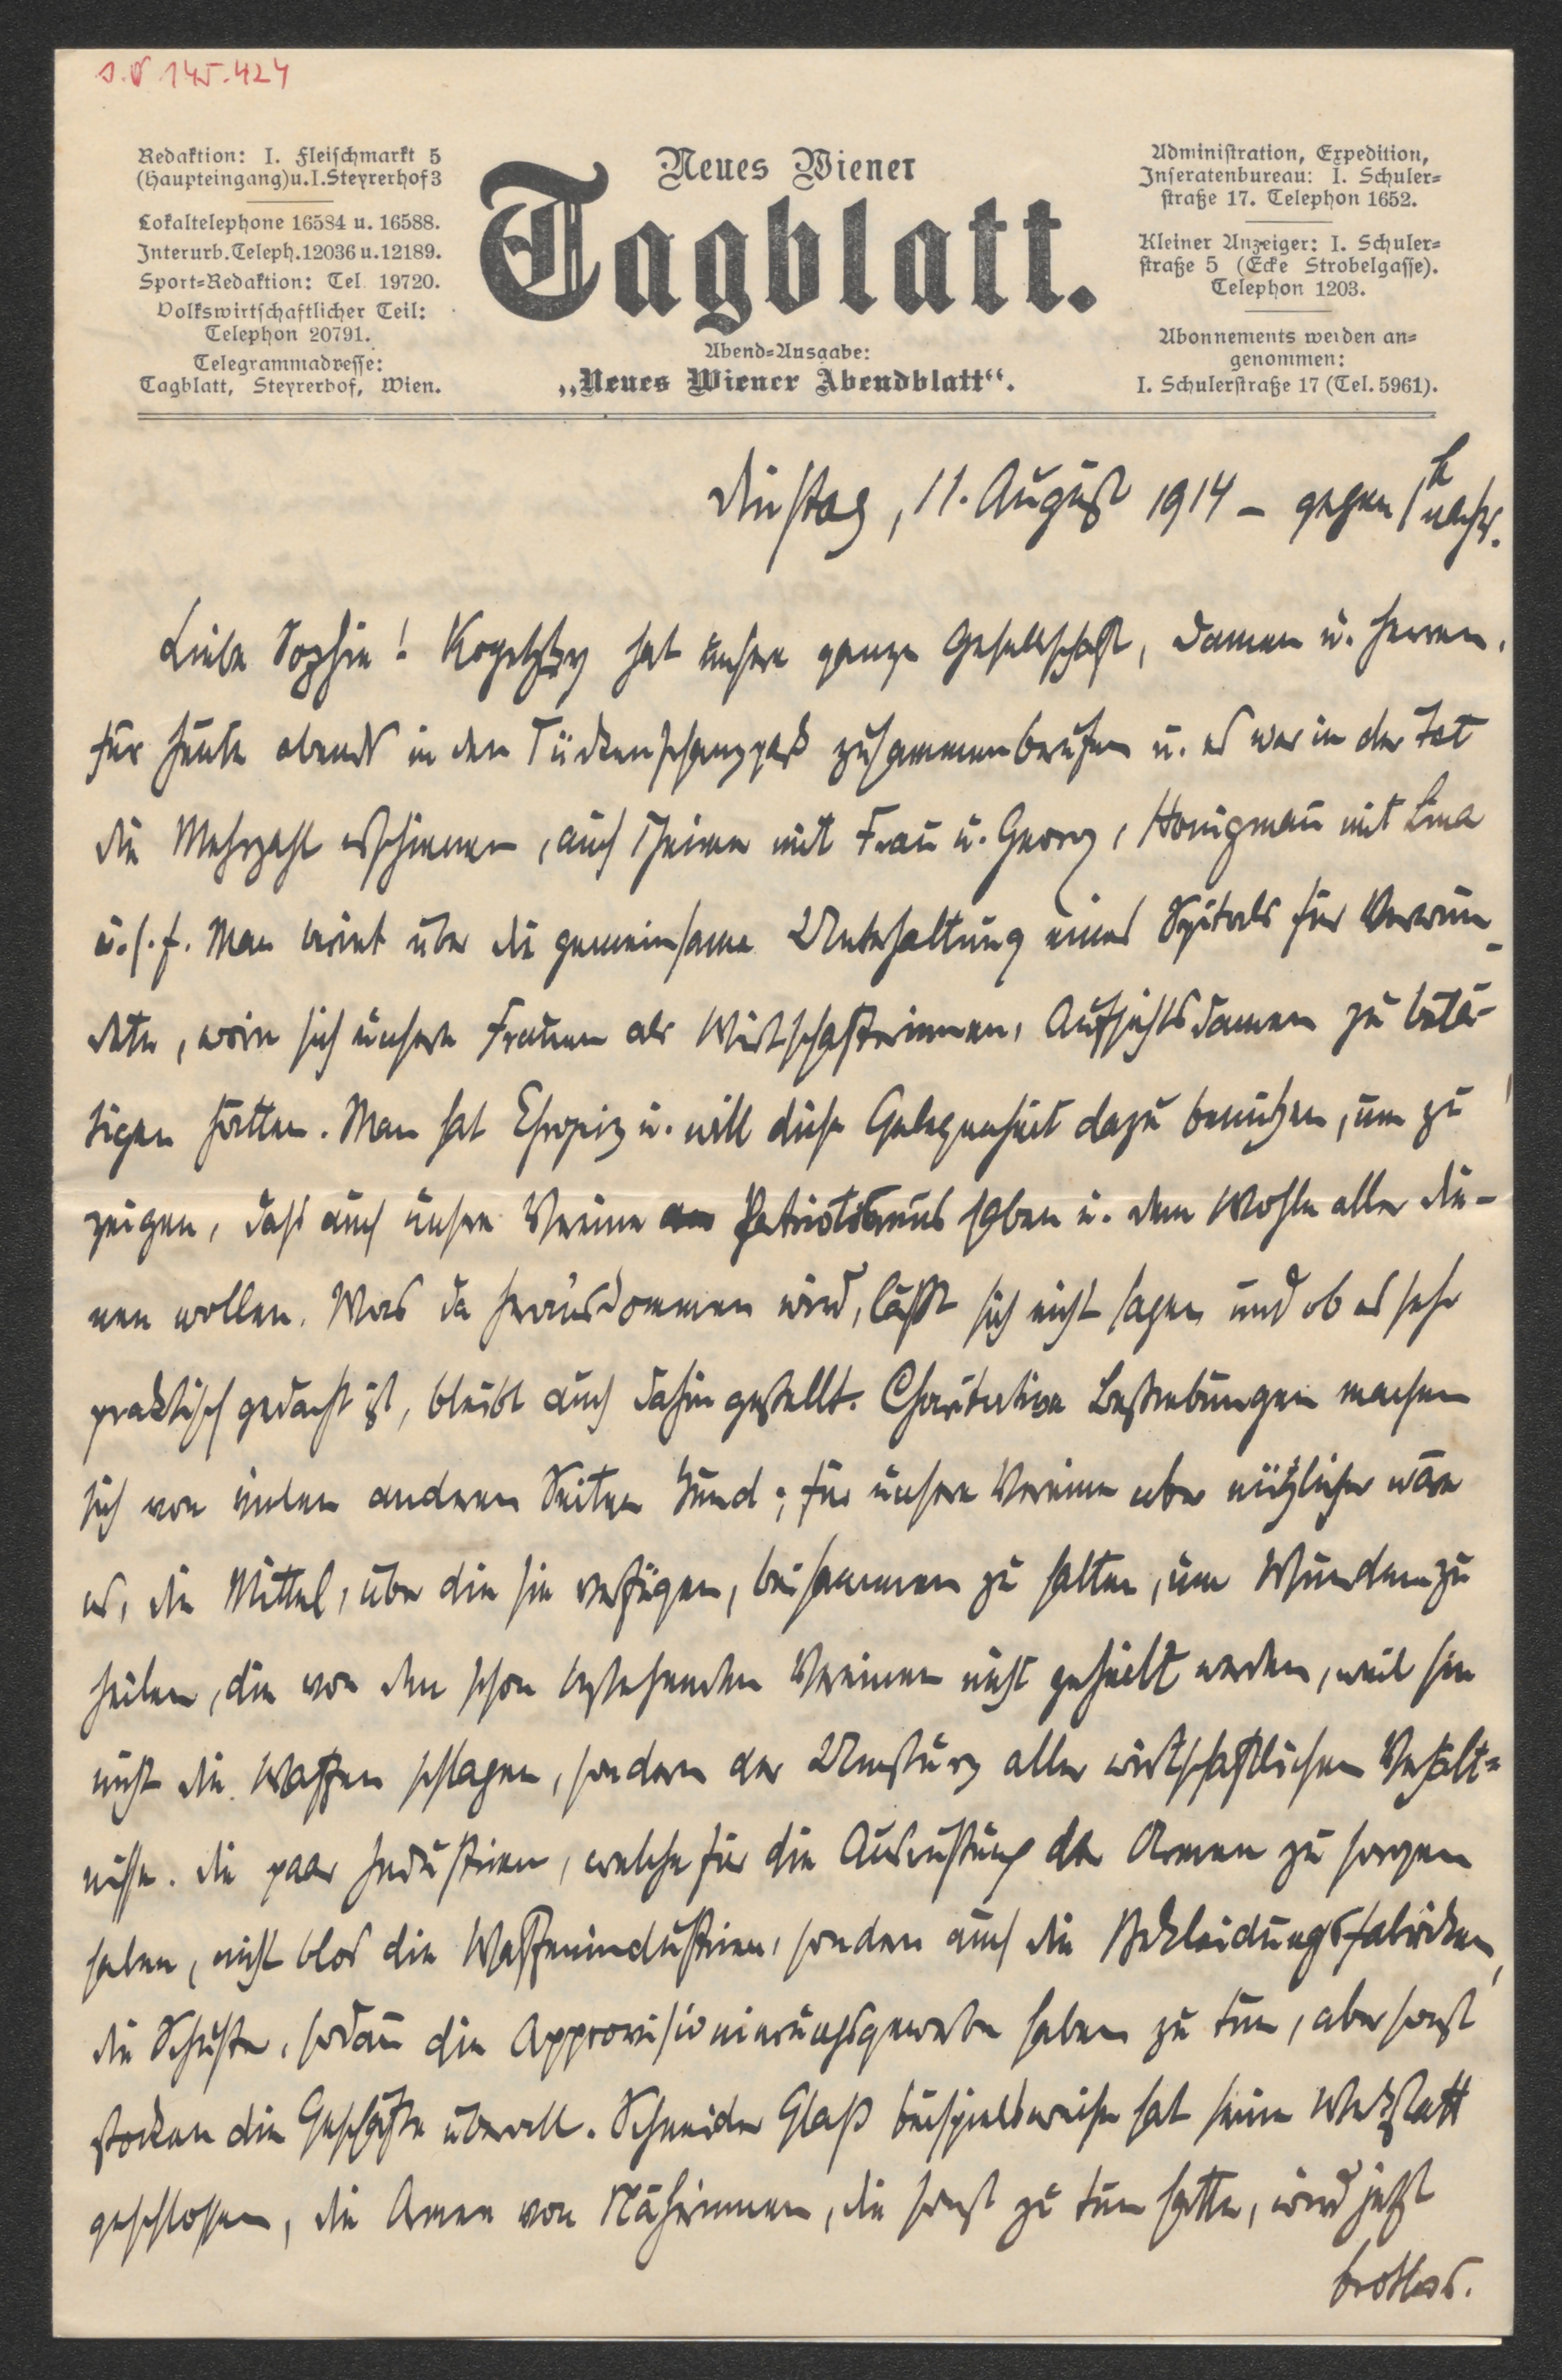 J.N 145.424
Redaktion: I. Fleischmarkt 5
(Haupteingang) u. I. Steyrerhof 3
Lokaltelephone 16584 u. 16588.
Interurb. Teleph. 12036 u. 12189.
Sport-Redaktion: Tel. 19720.
Volkswirtschaftlicher Teil:
Telephon 20791.
Telegrammadresse:
Tagblatt, Steyrerhof, Wien.
Neues Wiener
Tagblatt.
Abend-Ausgabe:
„Neues Wiener Abendblatt“.
Administration, Expedition,
Inseratenbureau: I. Schuler-
straße 17. Telephon 1652.
Kleiner Anzeiger: I. Schuler-
straße 5 (Ecke Strobelgasse).
Telephon 1203.
Abonnements werden an-
genommen:
I. Schulerstraße 17 (Tel. 5961).
Dienstag, 11. August 1914 – gegen 1h nachts.
Liebe Sophie! hat unsere ganze Gesellschaft, Damen u. Herren,
für heute abends in den Türkenschanzpark zusammenberufen u. es war in der Tat
die Mehrzahl erschienen, auch mit Frau u. Georg, Honigmann mit Lina
u.s.f. Man beriet über die gemeinsame Unterhaltung eines Spitals für Verwun-
dete, worin sich unsere Frauen als Wirtschafterinnen, Aufsichtsdamen zu betä-
tigen hätten. Man hat Ehrgeiz u. will diese Gelegenheit dazu benutzen, um zu
zeigen, dass auch unsere Vereine Patriotismus haben u. dem Wohle aller die-
nen wollen. Was da herauskommen wird, lässt sich nicht sagen und ob es sehr
praktisch gedacht ist, bleibt auch dahingestellt. Charitative Bestrebungen machen
sich von vielen anderen Seiten kund; für unsere Vereine aber nützlicher wäre
es, die Mittel, über die sie verfügen, beisammen zu halten, um Wunden zu
heilen, die von den schon bestehenden Vereinen nicht geheilt werden, weil sie
nicht die Waffen schlagen, sondern der Umsturz aller wirtschaftlichen Verhält-
nisse. Die paar Industrien, welche für die Ausrüstung der Armee zu sorgen
haben, nicht blos die Waffenindustrien, sondern auch die Bekleidungsfabriken,
die Schuster, sodann die Approvisionierungsgewerbe haben zu tun, aber sonst
stocken die Geschäfte überall. Schneider Glaß beispielsweise hat seine Werkstatt
geschlossen, die Armee von Näherinnen, die sonst zu tun hatte, wird jetzt
brotlos.